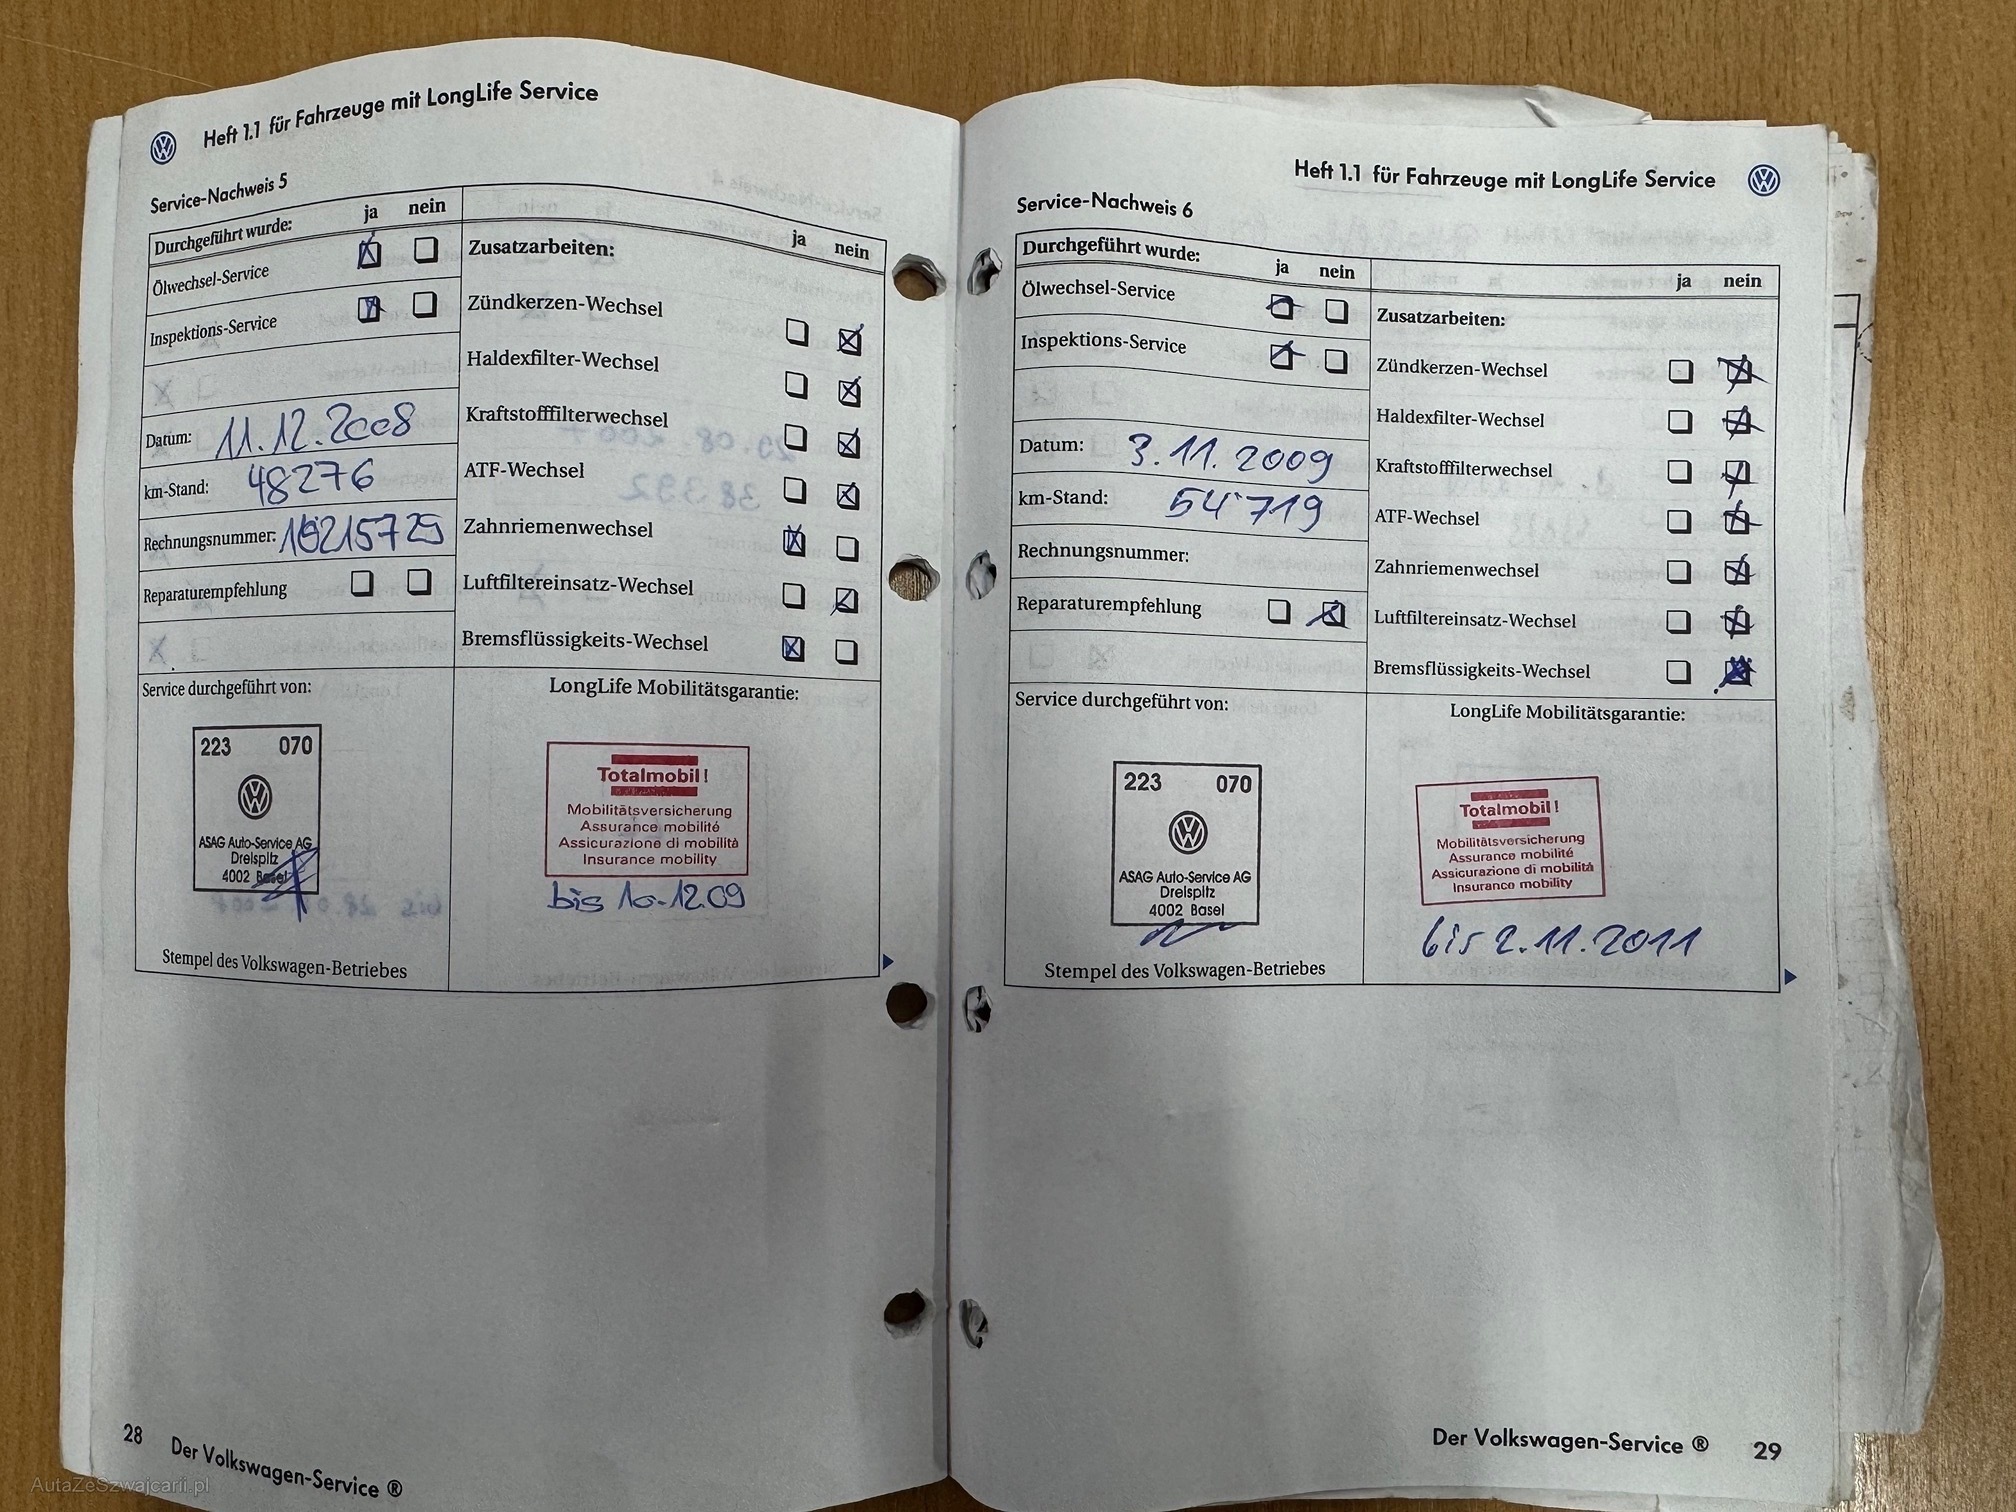 Heft 1.1 für Fahrzeuge mit LongLife Service
Service-Nachweis 5
Durchgeführt wurde: ja nein
Ölwechsel-Service
Inspektions-Service
Datum: 11.12.2008
km-Stand: 48276
Rechnungsnummer:
Reparaturempfehlung
Zusatzarbeiten: ja nein
Zündkerzen-Wechsel
Haldexfilter-Wechsel
Kraftstofffilterwechsel
ATF-Wechsel
Zahnriemenwechsel
Luftfiltereinsatz-Wechsel
Bremsflüssigkeits-Wechsel
Service durchgeführt von:
223 070
ASAG Auto-Service AG
Dreispitz
4002 Basel
Stempel des Volkswagen-Betriebes
LongLife Mobilitätsgarantie:
Totalmobil!
Mobilitätsversicherung
Assurance mobilité
Assicurazione di mobilità
Insurance mobility
bis 10.12.09
28 Der Volkswagen-Service ®
Heft 1.1 für Fahrzeuge mit LongLife Service
Service-Nachweis 6
Durchgeführt wurde: ja nein
Ölwechsel-Service
Inspektions-Service
Datum: 3.11.2009
km-Stand: 54'719
Rechnungsnummer:
Reparaturempfehlung
ja nein
Zusatzarbeiten:
Zündkerzen-Wechsel
Haldexfilter-Wechsel
Kraftstofffilterwechsel
ATF-Wechsel
Zahnriemenwechsel
Luftfiltereinsatz-Wechsel
Bremsflüssigkeits-Wechsel
Service durchgeführt von:
223 070
ASAG Auto-Service AG
Dreispitz
4002 Basel
Stempel des Volkswagen-Betriebes
LongLife Mobilitätsgarantie:
Totalmobil!
Mobilitätsversicherung
Assurance mobilité
Assicurazione di mobilità
Insurance mobility
bis 2.11.2011
Der Volkswagen-Service ® 29
AutaZeSzwajcarii.pl